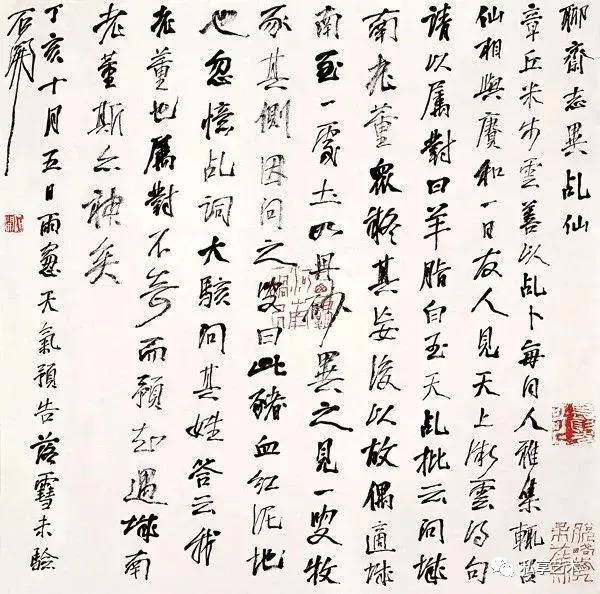 聊齋志異乩仙
章丘米步雲善以乩卜每同人雅集輒召
仙相與賡和一日友人見天上微雲得句
請以屬對曰羊脂白玉天乩批云問城
南老董眾疑其妄後以故偶適城
南至一處土如丹砂異之見一叟牧
豕其側因問之叟曰此豬血紅泥地
也忽憶乩詞大駭問其姓答云我
老董也屬對不奇而預知遇城南
老董斯亦神矣
丁亥十月五日雨窻天氣預告落雪未驗
石開
私享艺术